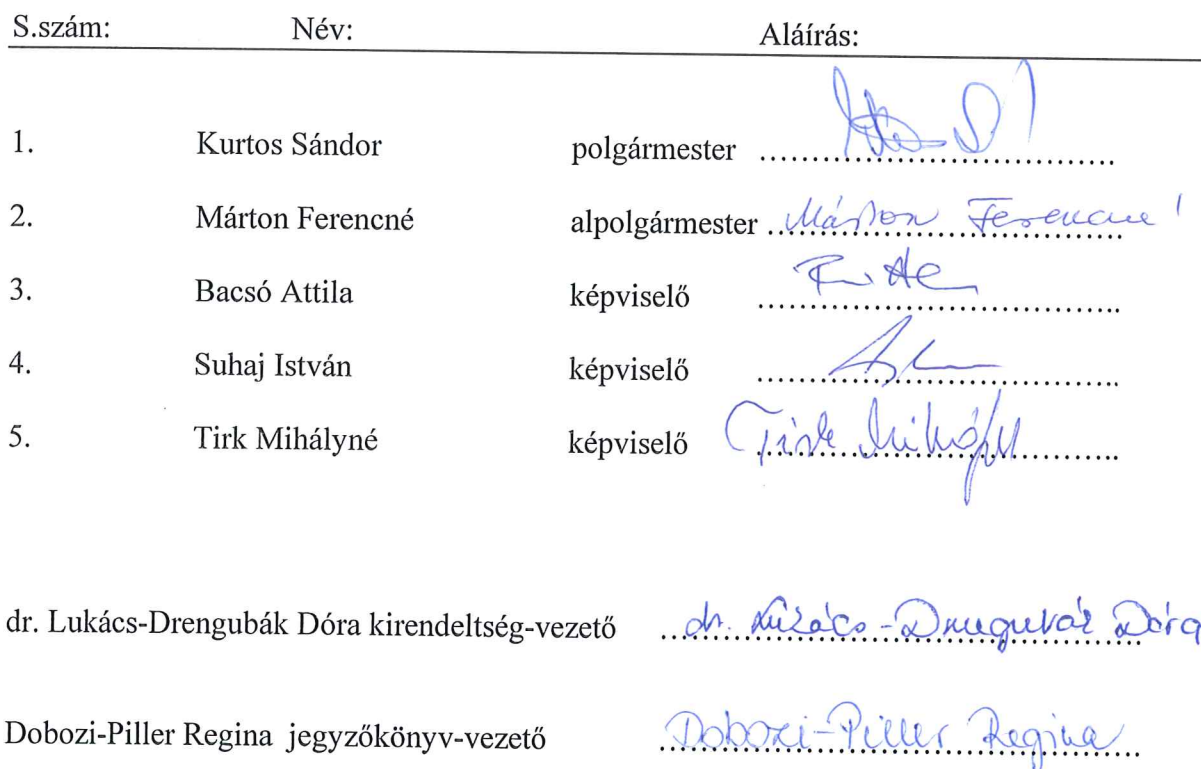 S.szám: Név: Aláírás:
1. Kurtos Sándor polgármester ................................
2. Márton Ferencné alpolgármester Márton Ferencné
3. Bacsó Attila képviselő ................................
4. Suhaj István képviselő ................................
5. Tirk Mihályné képviselő Tirk Mihály
dr. Lukács-Drengubák Dóra kirendeltség-vezető dr. Lukács-Drengubák Dóra
Dobozi-Piller Regina jegyzőkönyv-vezető Dobozi-Piller Regina